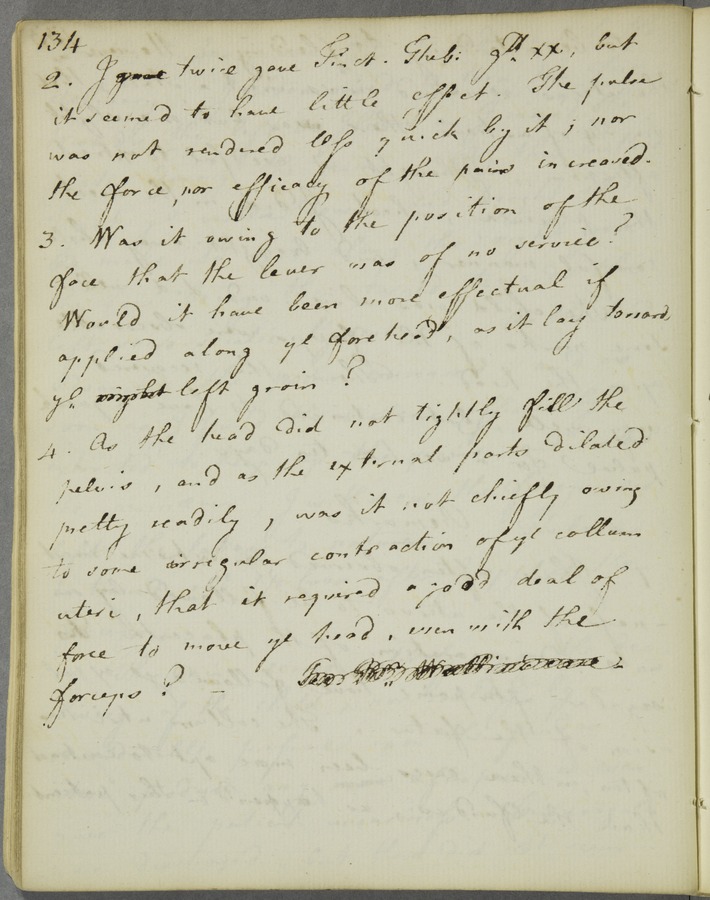 134
2. I gave twice gave Tinct. Theb: gtt xx, but
it seemed to have little effect. The pulse
was not rendered less quick by it; nor
the force, nor efficacy of the pains increased.
3. Was it owing to the position of the
face that the lever was of no service?
Would it have been more effectual if
applied along ye forehead, as it lay toward
ye right left groin?
4. As the head did not tightly fill the
pelvis, and as the external parts dilated
pretty readily, was it not chiefly owing
to some irregular contraction of ye collum
uteri, that it required a good deal of
force to move ye head, even with the
forceps? –